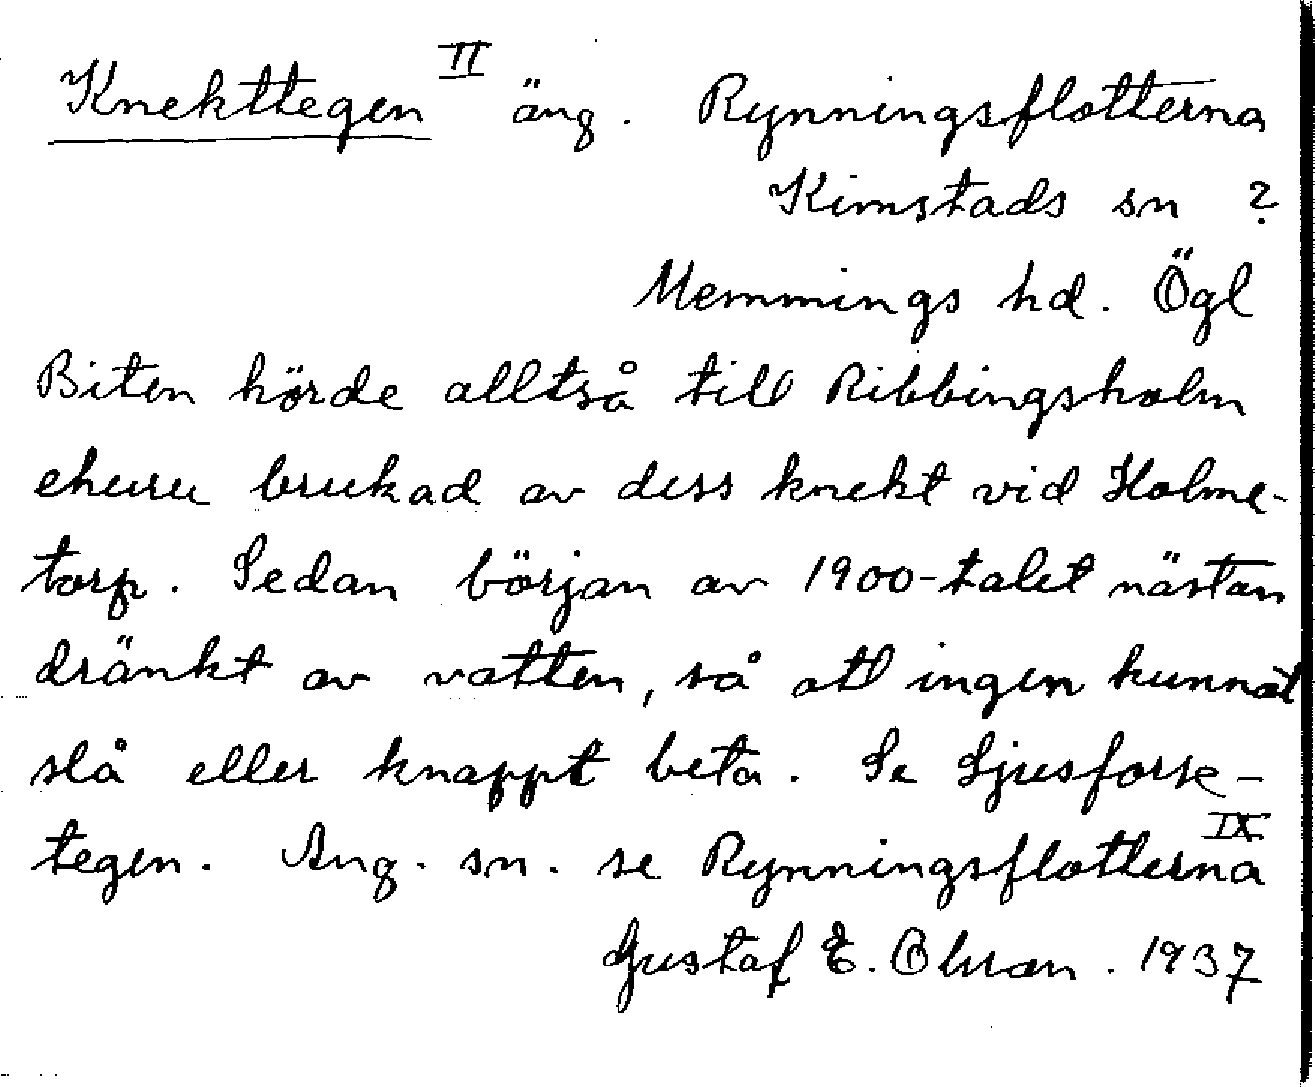 Knekttegen II äng. Rynningsflotterna
Kimstads sn ?
Memmings hd. Ögl
Biten hörde alltså till Ribbingsholm
ehuru brukad av dess knekt vid Holme-
torp. Sedan början av 1900-talet nästan
dränkt av vatten, så att ingen kunnat
slå eller knappt beta. Se Ljusforse-
tegen. Ang. sn. se Rynningsflotterna IX
Gustaf E. Olsson. 1937